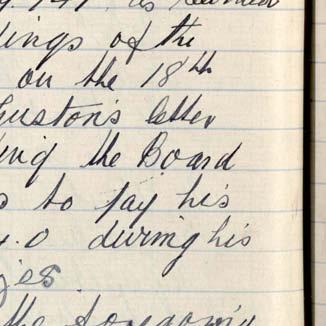 ings of the
on the 18th
uston's letter
ing the Board
s to pay his
4.0 during his
es.
the foregoing